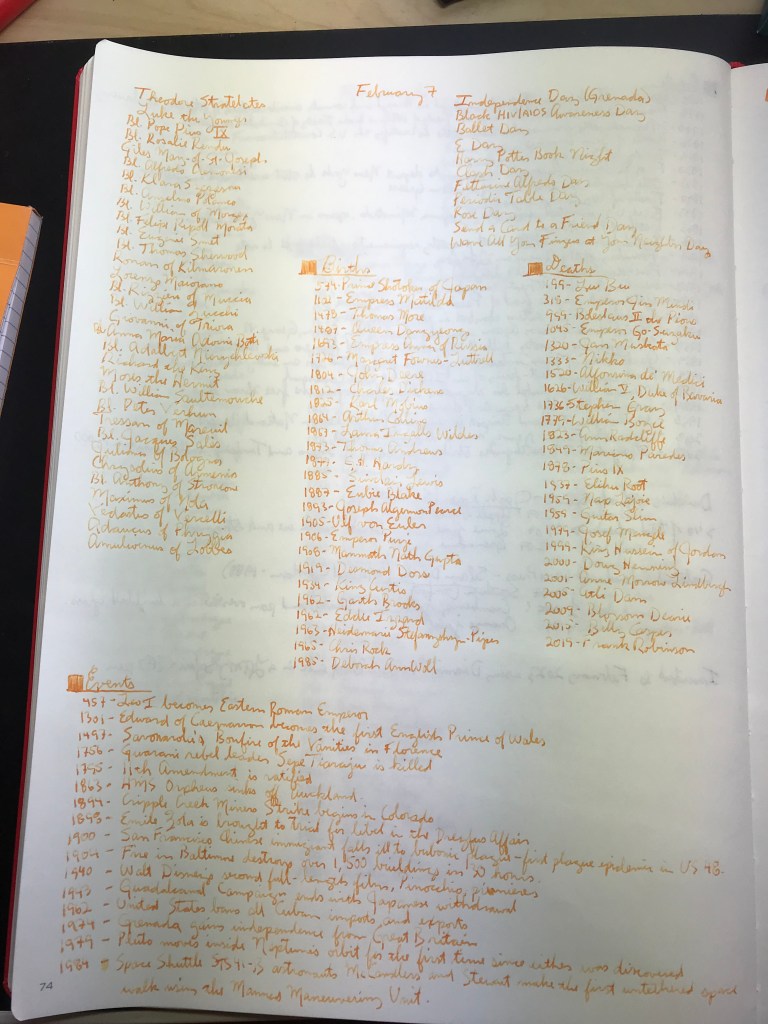 February 7
Theodore Stratelates
Luke the Younger
Bl. Pope Pius IX
Bl. Rosalie Rendu
Giles Mary-of-St-Joseph.
Bl. Alfredo
Bl. Klara
Bl. Anselmo
Bl. William of
Bl. Felipe Ripoll Morata
Bl. Eugenie Smet
Bl. Thomas Sherwood
Ronan of Kilmaronen
Lorenzo Maiorano
Bl. Rizziero of Muccia
Bl. William Zucchi
Giovanni of Triora
Bl. Anna Maria Adorni Botti
Bl. Adalbert Nierychlewski
Richard the King
Moses the Hermit
Bl. William Saultemouche
Bl. Peter Verhun
Tressan of Mareuil
Bl. Jacques Salès
Juliana of Bologna
Chrysolius of Armenia
Bl. Anthony of Stroncone
Maximus of Nola
Fedentes of Vercelli
Adaucus of Phrygia
Amulwinus of Lobbes
Independence Day (Grenada)
Black HIV/AIDS Awareness Day
Ballot Day
E Day
Harry Potter Book Night
Clash Day
Fettucine Alfredo Day
Periodic Table Day
Rose Day
Send a Card to a Friend Day
Wave All Your Fingers at Your Neighbor Day
Births
574 - Prince Shotoku of Japan
1102 - Empress Matilda
1478 - Thomas More
1487 - Queen Dangyeong
1693 - Empress Anna of Russia
1726 - Margaret Fownes-Luttrell
1804 - John Deere
1812 - Charles Dickens
1825 - Karl Möbius
1864 - Arthur Collins
1867 - Laura Ingalls Wilder
1873 - Thomas Andrews
1877 - G.H. Hardy
1885 - Sinclair Lewis
1887 - Eubie Blake
1893 - Joseph Algernon Pearce
1905 - Ulf von Euler
1906 - Emperor Puyi
1908 - Manmath Nath Gupta
1919 - Desmond Doss
1934 - King Curtis
1962 - Garth Brooks
1962 - Eddie Izzard
1963 - Heidemarie Stefanyshyn-Piper
1965 - Chris Rock
1985 - Deborah Ann Woll
Deaths
199 - Lu Bu
318 - Emperor Jin Mindi
999 - Boleslaus II the Pious
1045 - Emperor Go-Suzaku
1320 - Jan Muskata
1333 - Nikko
1520 - Alfonsina de' Medici
1626 - William V, Duke of Bavaria
1736 - Stephen Gray
1779 - William Boyce
1823 - Ann Radcliffe
1849 - Mariano Paredes
1878 - Pius IX
1937 - Elihu Root
1959 - Nap Lajoie
1959 - Guitar Slim
1979 - Josef Mengele
1999 - King Hussein of Jordan
2000 - Doug Henning
2001 - Anne Morrow Lindbergh
2005 - Atli Dam
2009 - Blossom Dearie
2015 - Billy Casper
2019 - Frank Robinson
Events
457 - Leo I becomes Eastern Roman Emperor
1301 - Edward of Caernarvon becomes the first English Prince of Wales
1497 - Savonarola's Bonfire of the Vanities in Florence
1756 - Guaraní rebel leader Sepé Tiaraju is killed
1795 - 11th Amendment is ratified
1863 - HMS Orpheus sinks off Auckland.
1894 - Cripple Creek Miners Strike begins in Colorado
1898 - Émile Zola is brought to trial for libel in the Dreyfus Affair
1900 - San Francisco Chinese immigrant falls ill to bubonic plague - first plague epidemic in US 48.
1904 - Fire in Baltimore destroys over 1,500 buildings in 30 hours.
1940 - Walt Disney's second full-length film, Pinocchio, premieres
1943 - Guadalcanal Campaign ends with Japanese withdrawal
1962 - United States bans all Cuban imports and exports
1974 - Grenada gains independence from Great Britain
1979 - Pluto moves inside Neptune's orbit for the first time since either was discovered
1984 - Space Shuttle STS 41-B astronauts McCandless and Stewart make the first untethered space
walk using the Manned Maneuvering Unit.
74